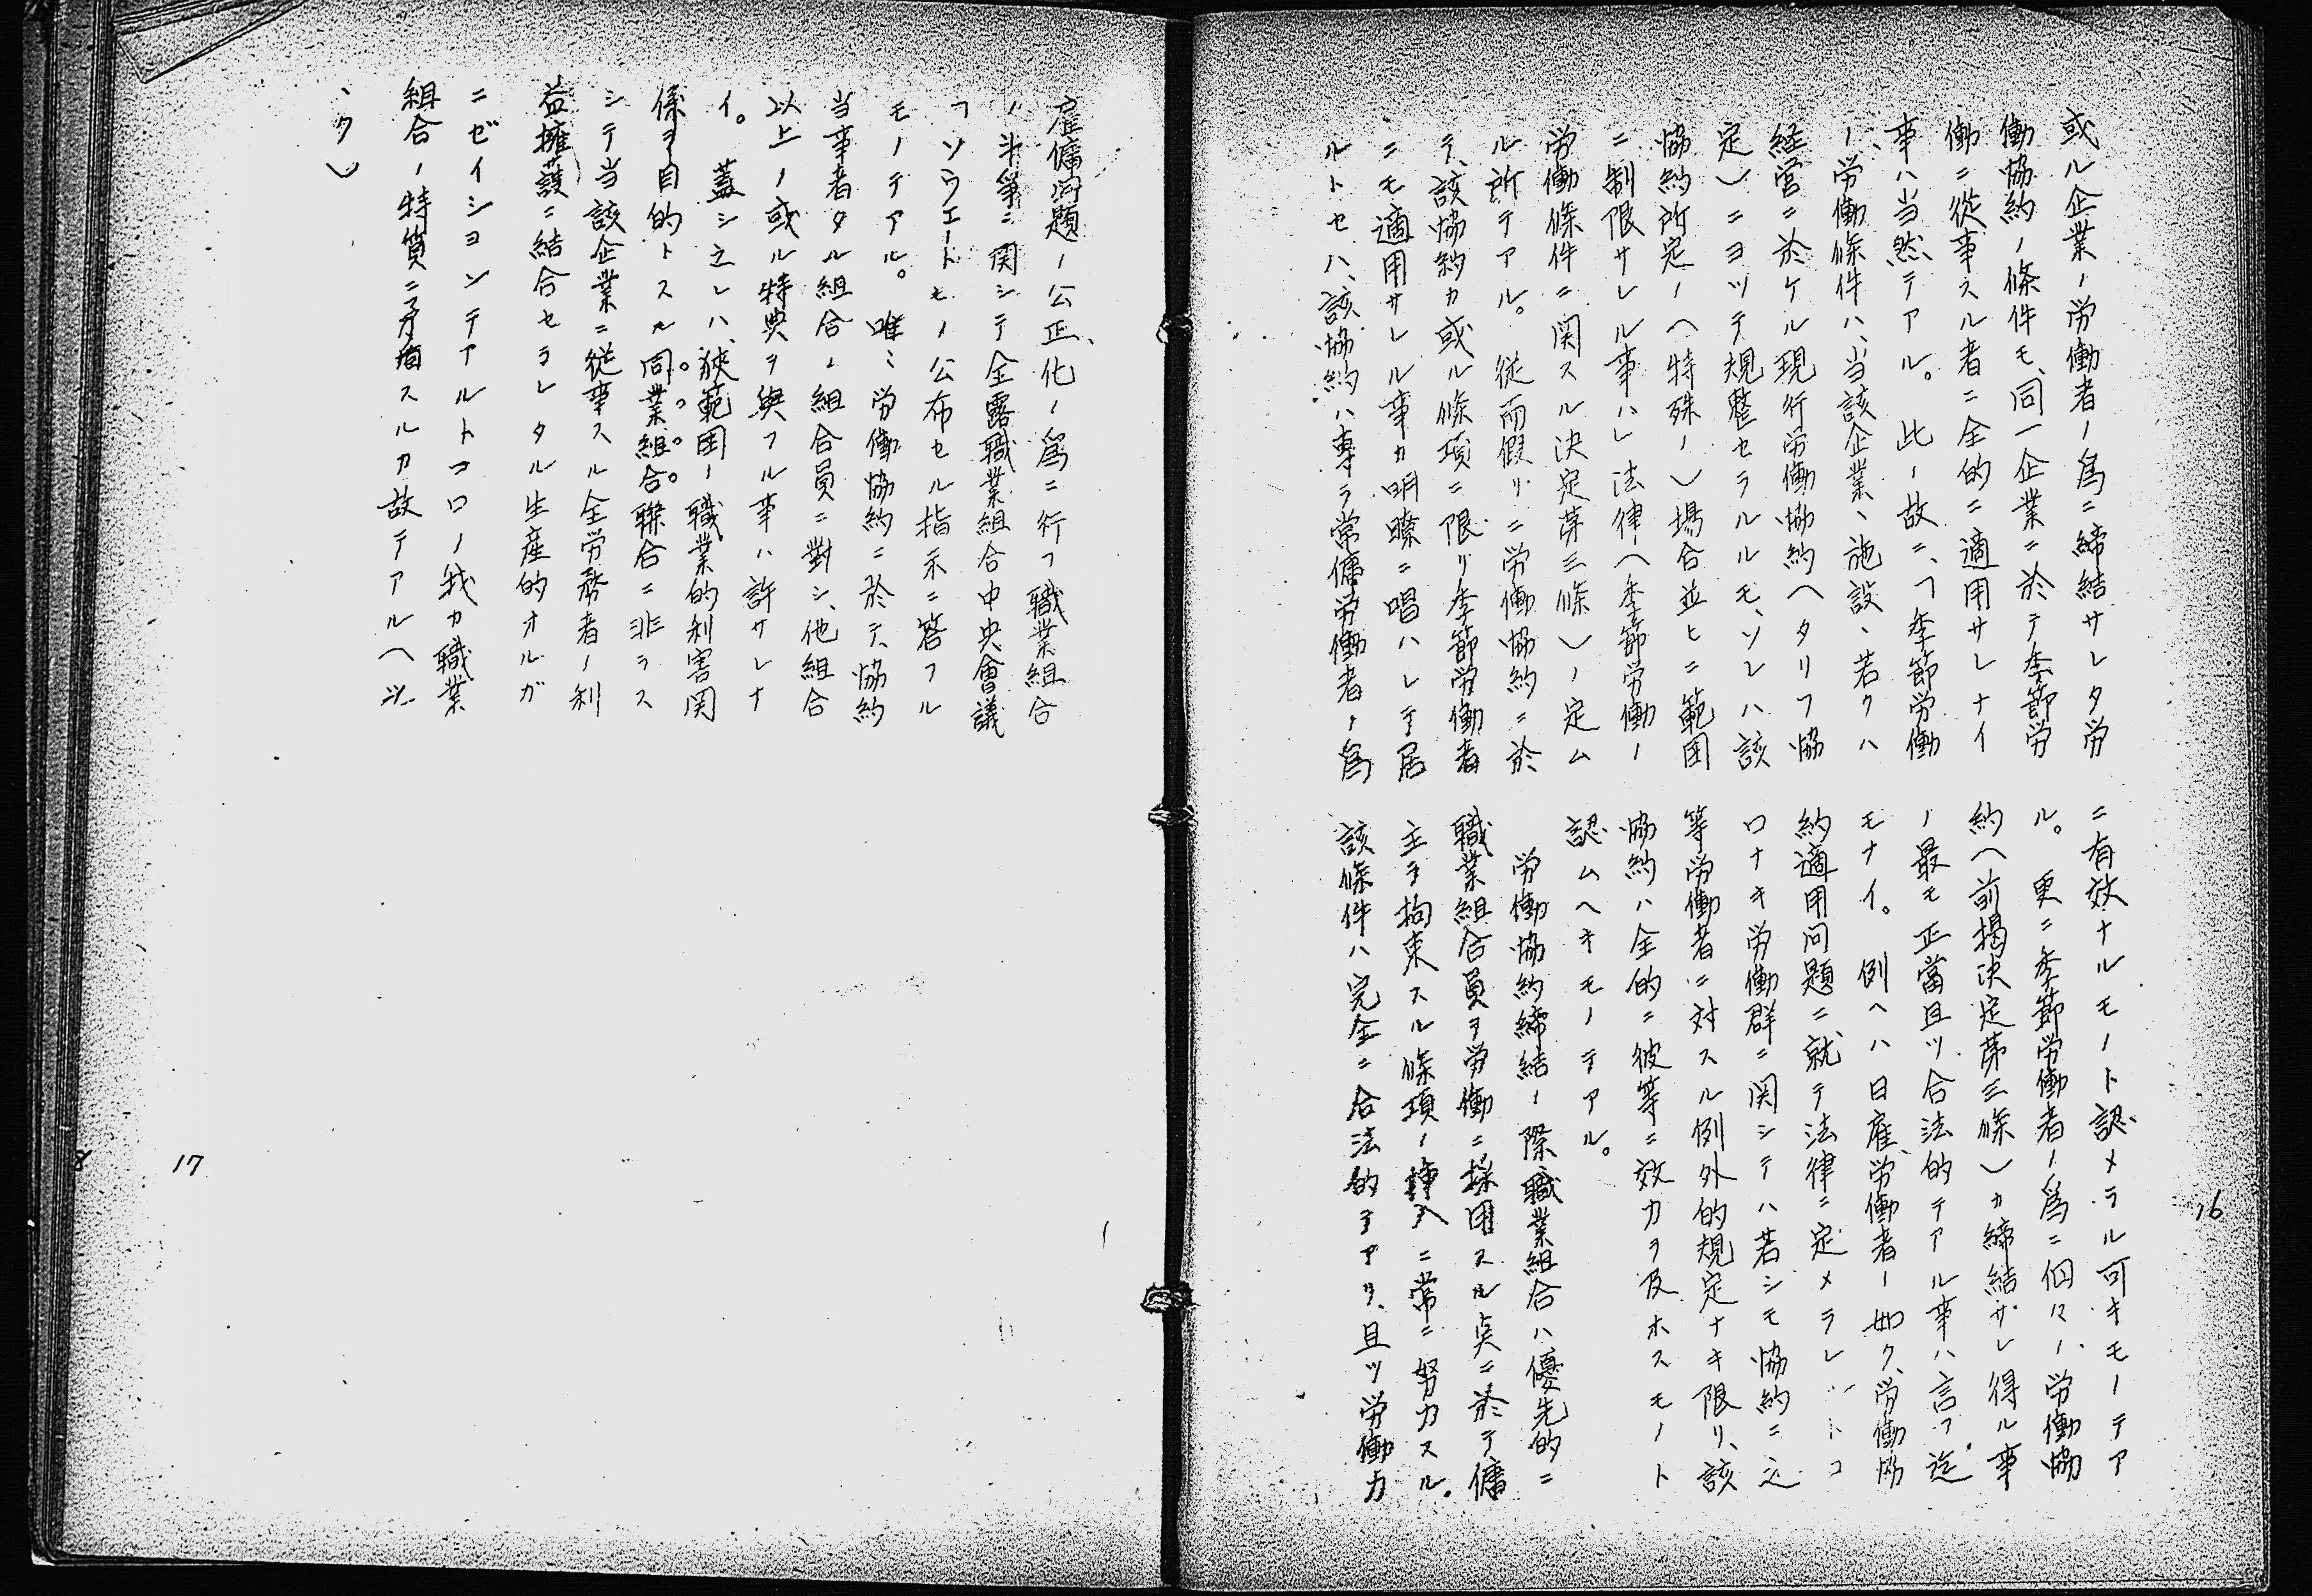 16
或ル企業ノ労働者ノ爲ニ締結サレタ労
働協約ノ條件モ、同一企業ニ於テ季節労
働ニ從事スル者ニ全的ニ適用サレナイ
事ハ当然テアル。此ノ故ニ、「季節労働
ノ労働條件ハ、当該企業、施設、若クハ
経営ニ於ケル現行労働協約(タリフ協
定)ニヨツテ規整セラルルモ、ソレハ該
協約所定ノ(特殊ノ)場合並ヒニ範囲
ニ制限サレル事ハ」法律(季節労働ノ
労働條件ニ関スル決定第三條)ノ定ム
ル所テアル。從而假リニ労働協約ニ於
テ、該協約カ或ル條項ニ限リ季節労働者
ニモ適用サレル事カ明瞭ニ唱ハレテ居
ルトセハ、該協約ハ專ラ常傭労働者ノ爲
ニ有效ナルモノト認メラル可キモノテア
ル。更ニ季節労働者ノ爲ニ個々ノ労働協
約(前掲決定第三條)カ締結サレ得ル事
ノ最モ正當且ツ合法的テアル事ハ言フ迄
モナイ。例ヘハ日雇労働者ノ如ク、労働協
約適用问題ニ就テ法律ニ定メラレ トコ
ロナキ労働群ニ関シテハ若シモ協約ニ之
等労働者ニ対スル例外的規定ナキ限リ、該
協約ハ全的ニ彼等ニ效力ヲ及ホスモノト
認ムヘキモノテアル。
労働協約締結ノ際職業組合ハ優先的ニ
職業組合員ヲ労働ニ採用スル点ニ於テ傭
主ヲ拘束スル條項ノ挿入ニ常ニ努力スル。
該條件ハ完全ニ合法的テアリ、且ツ労働力
雇傭问題ノ公正化ノ爲ニ行フ職業組合
ノ斗爭ニ関シテ全露職業組合中央會議
「ソウエート」ノ公布セル指示ニ答フル
モノテアル。唯ミ労働協約ニ於テ、協約
当事者タル組合ノ組合員ニ對シ、他組合
以上ノ或ル特典ヲ與フル事ハ許サレナ
イ。蓋シ之レハ、狹範囲ノ職業的利害関
係ヲ自的トスル同業組合聯合ニ非ラス
シテ当該企業ニ從事スル全労務者ノ利
益擁護ニ結合セラレタル生産的オルガ
ニゼイシヨンテアルトコロノ我カ職業
組合ノ特質ニ矛盾スルカ故テアル(
、ク)
17